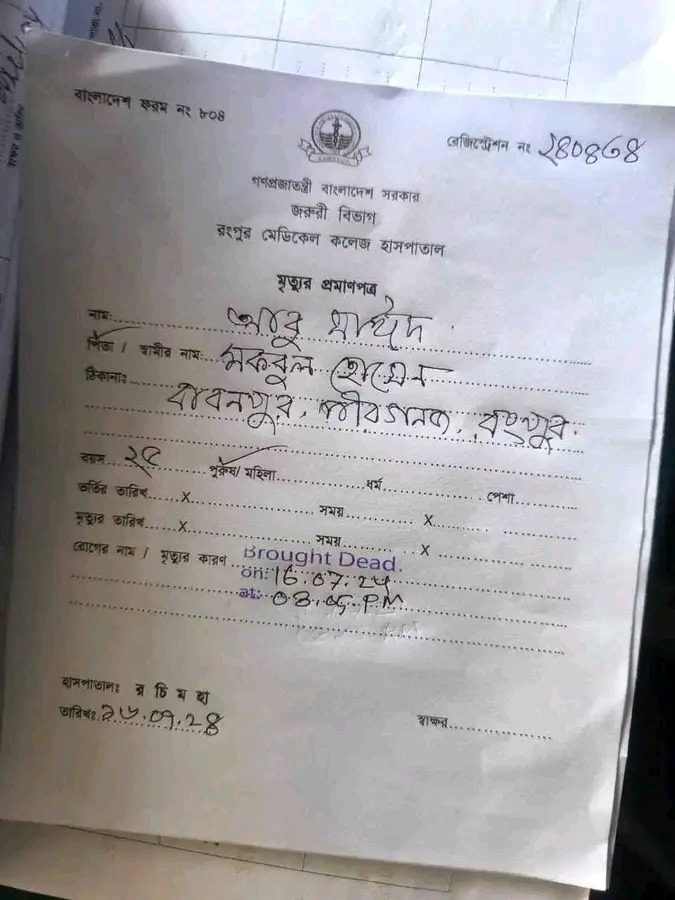 বাংলাদেশ ফরম নং ৮০৪
রেজিস্ট্রেশন নং ২৪০৪৬৪
গণপ্রজাতন্ত্রী বাংলাদেশ সরকার
জরুরী বিভাগ
রংপুর মেডিকেল কলেজ হাসপাতাল
মৃত্যুর প্রমাণপত্র
নাম: আবু সাইদ
পিতা / স্বামীর নাম: মকবুল হোসেন
ঠিকানাঃ
বাবনপুর, পীরগনজ, রংপুর
বয়স ২৫ পুরুষ/ মহিলা ধর্ম পেশা
ভর্তির তারিখ X সময় X
মৃত্যুর তারিখ X সময় X
রোগের নাম / মৃত্যুর কারণ Brought Dead.
on: 16.07.24
at: 03.05 PM
হাসপাতালঃ র চি ম হা
তারিখঃ ১৬.০৭.২৪ স্বাক্ষর